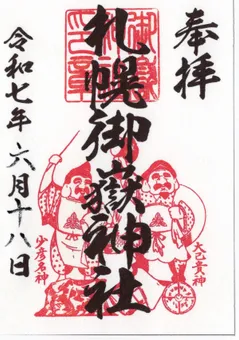 奉拝
札幌御嶽神社
令和七年六月十八日
大己貴神
少彦名神